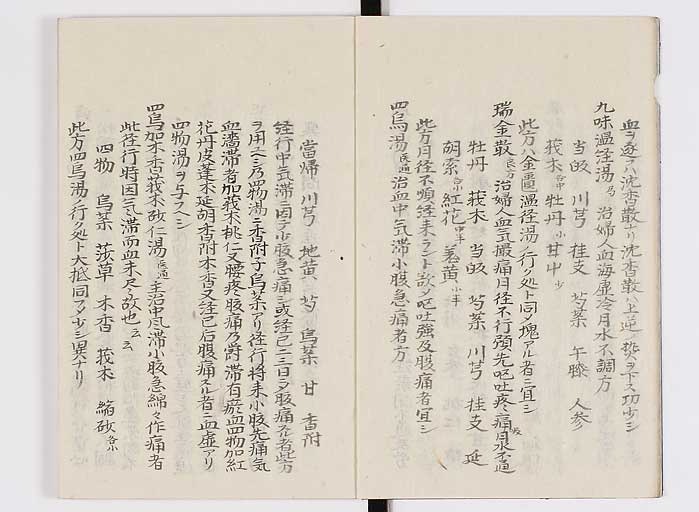 血ヲ逐フハ沈香散ナリ沈香散ハ上逆ノ熱ヲ下ス功少シ
九味温経湯 治婦人血海虚冷月水不調方
当皈 川芎 桂支 芍薬 午膝 人参
莪朮 牡丹 甘中
此方ハ金匱温経湯ノ行ク処ト同シ塊アル者ニ宜シ
瑞金散 治婦人血気撮痛月徃不行預先呕吐疼痛月水不通
牡丹 莪朮 当皈 芍薬 川芎 桂支 延
胡索 紅花 姜黄
此方月徃不順経来ラント欲メ呕吐強及腹痛者宜シ
四烏湯 治血中気滞小腹急痛者方
當帰 川芎 地黄 芍 烏薬 甘 香附
経行中気滞ニ因テ小腹急痛シ或経已ニ三日ヲ腹痛スル者此方
ヲ用ヘシ乃四物湯ニ香附子烏薬ナリ徃行将来小腹先痛気
血濇滞者加莪朮桃仁又腰疼腹痛乃欝滞有瘀血四物加紅
花丹皮蓬朮延胡香附木香又経已后腹痛スル者ニ血虚アリ
四物湯ヲ与スヘシ
四烏加木香莪朮砂仁湯 主治中気滞小腹急綿々作痛者
此徃行時因気滞而血来尽故也云云
四物 烏薬 莎草 木香 莪朮 縮砂
此方四烏湯ノ行ク処ト大抵同フメ少シ異ナリ